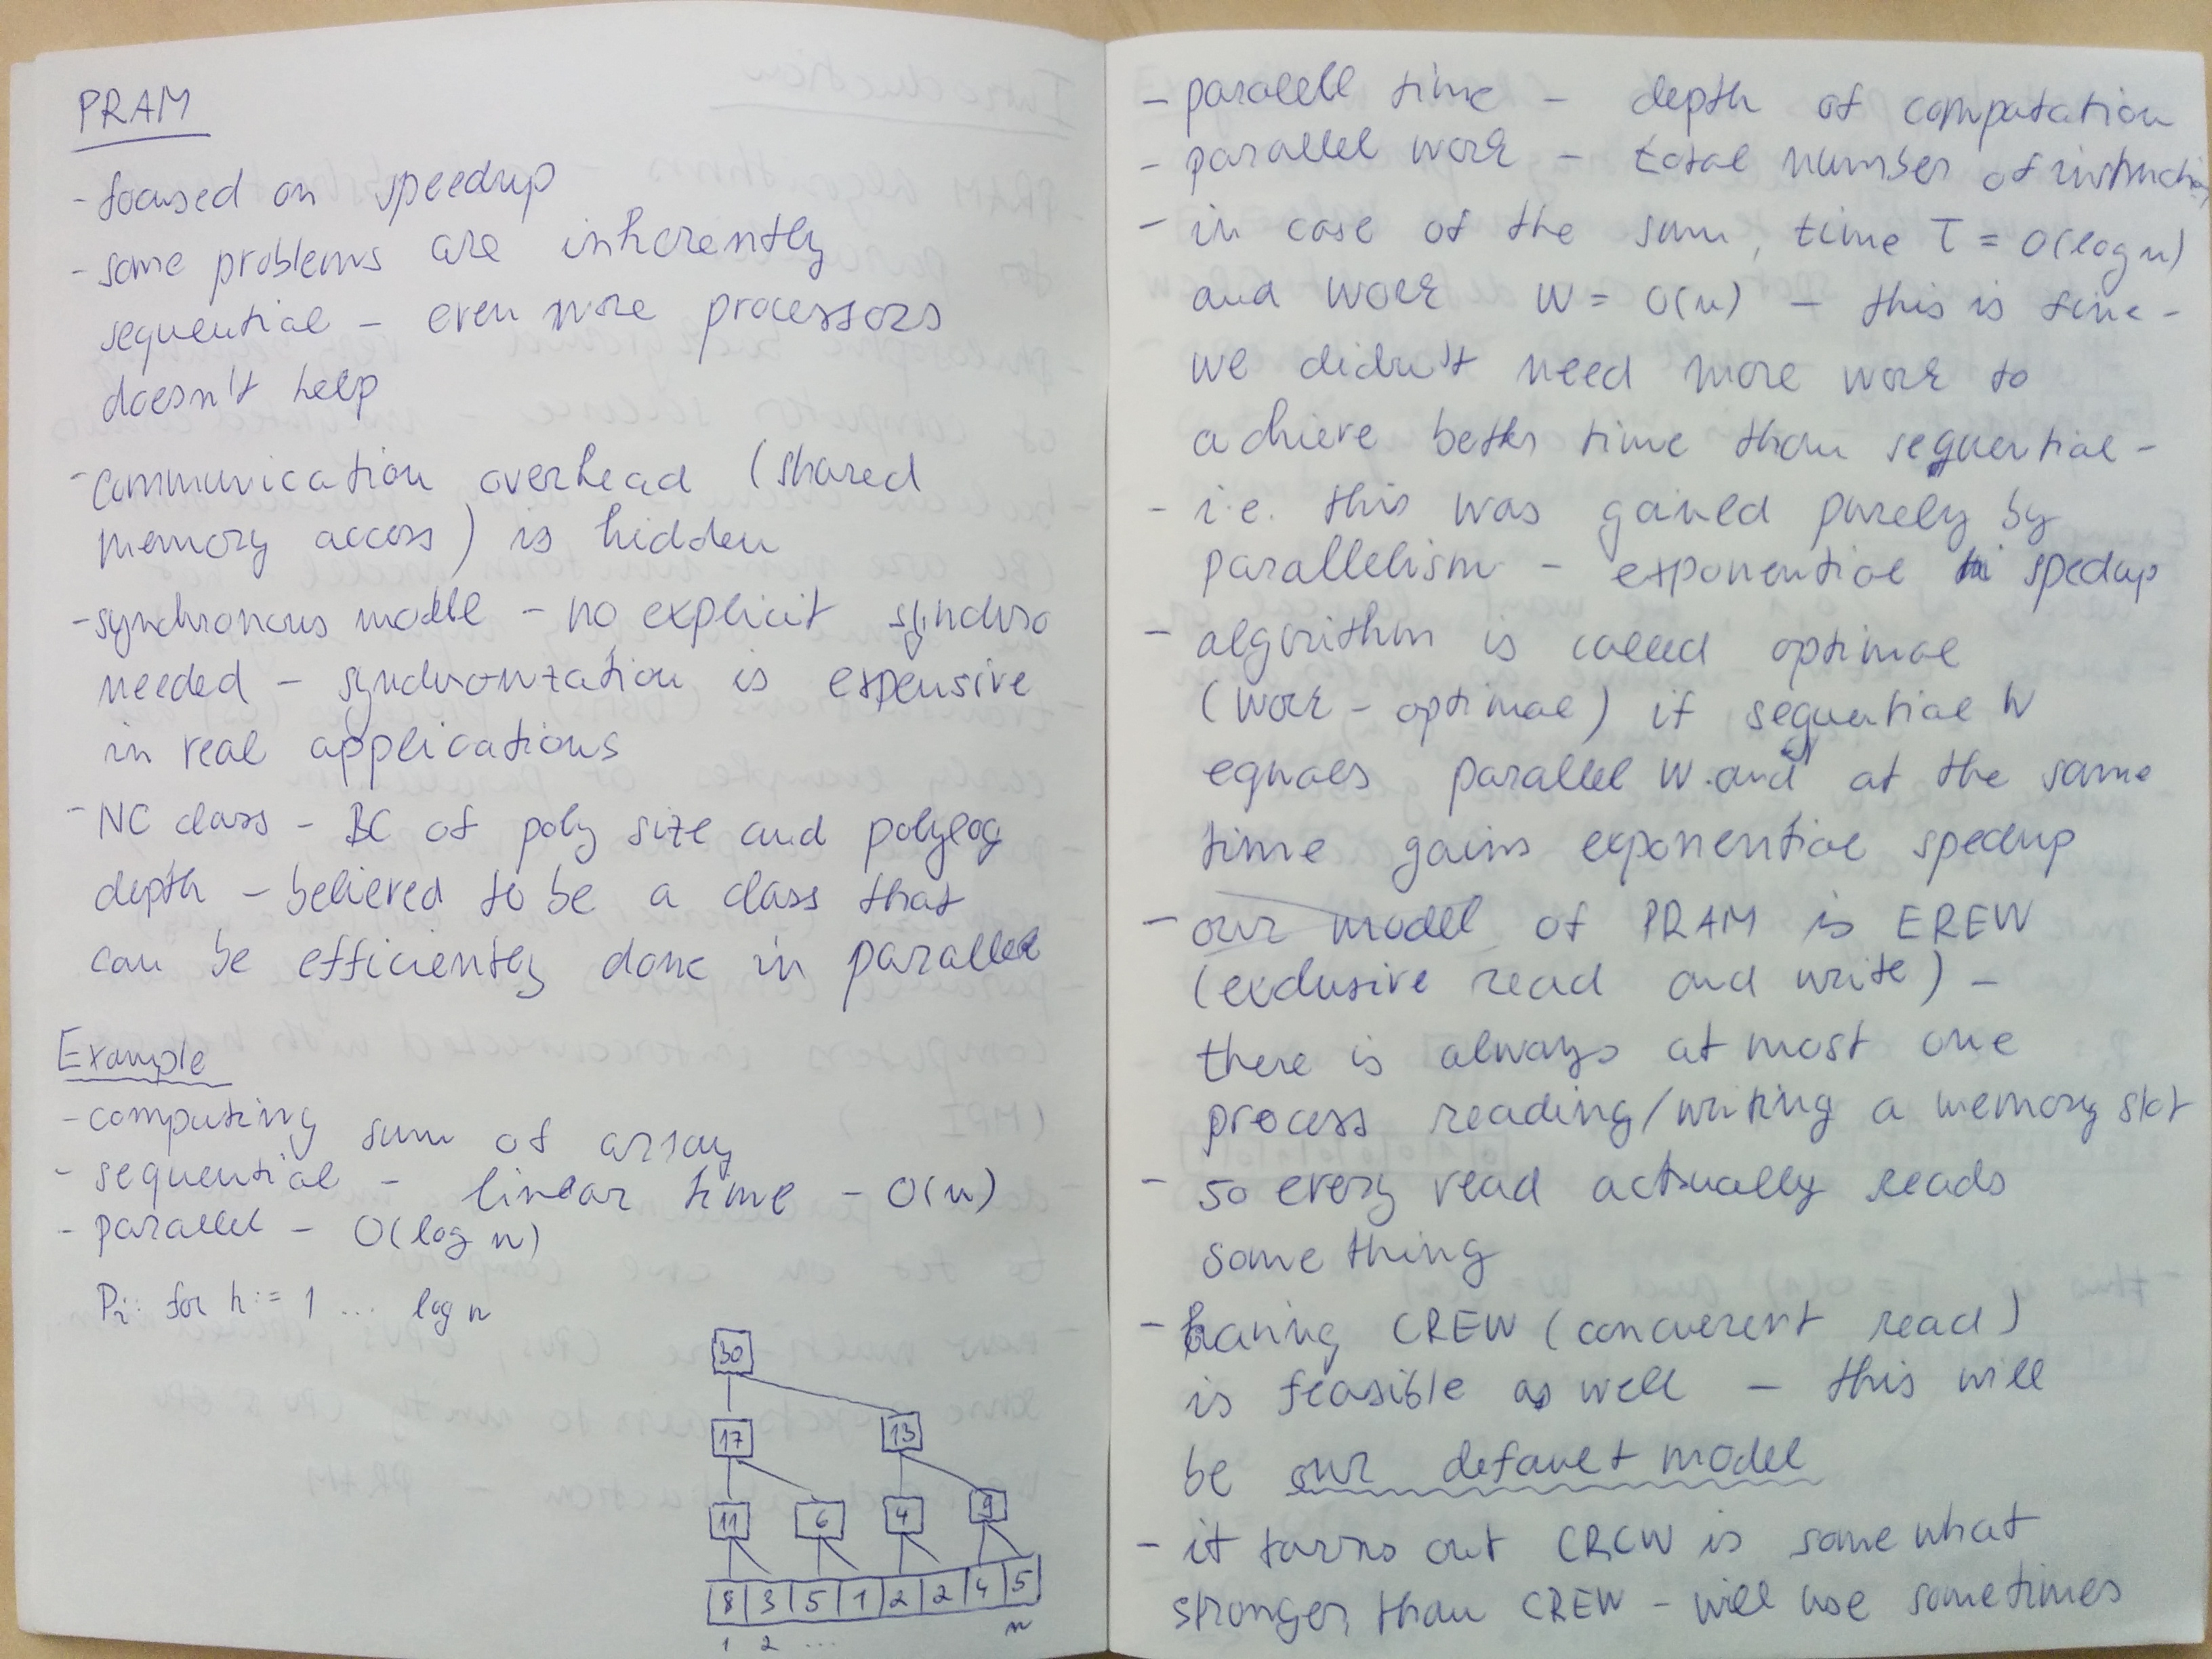 PRAM
- focused on speedup
- some problems are inherently
sequential - even more processors
doesn't help
- communication overhead (shared
memory access) is hidden
- synchronous modle - no explicit synchro
needed - synchronization is expensive
in real applications
- NC class - BC of poly size and polylog
depth - believed to be a class that
can be efficiently done in parallel
Example
- computing sum of array
- sequential - linear time - O(n)
- parallel - O(log n)
Pi: for h := 1 ... log n
30
17 13
11 6 4 9
8 3 5 1 2 2 4 5
1 2 ... n
- paralell time - depth of computation
- parallel work - total number of instructions
- in case of the sum, time T = O(log n)
and work W = O(n) - this is fine -
we didn't need more work to
achieve better time than sequential -
- i.e. this was gained purely by
parallelism - exponential spedup
- algorithm is called optimal
(work-optimal) if sequential W
equals parallel W and at the same
time gains exponential spedup
- our model of PRAM is EREW
(exclusive read and write) -
there is always at most one
process reading/writing a memory slot
- so every read actually reads
something
- having CREW (concurerent read)
is feasible as well - this will
be our default model
- it turns out CRCW is somewhat
stronger than CREW - will use sometimes